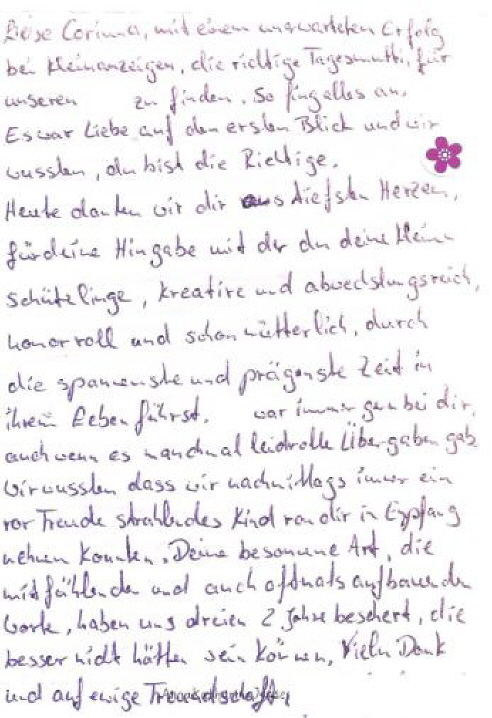 Liebe Corinna, mit einem unerwarteten Erfolg
bei Kleinanzeigen, die richtige Tagesmutti, für
unseren zu finden. So fing alles an.
Es war Liebe auf den ersten Blick und wir
wussten, du bist die Richtige.
Heute danken wir dir aus tiefsten Herzen,
für deine Hingabe mit der du deine kleinen
Schützlinge, kreative und abwechslungsreich,
humorvoll und schon mütterlich, durch
die spannenste und prägenste Zeit in
ihrem Leben führst. war immer gern bei dir,
auch wenn es manchmal leidvolle Übergaben gab
Wir wussten dass wir nachmittags immer ein
vor Freude strahlendes Kind von dir in Empfang
nehmen konnten. Deine besonnene Art, die
mitfühlenden und auch oftmals aufbauenden
Worte, haben uns dreien 2 Jahre beschert, die
besser nicht hätten sein können, Vielen Dank
und auf ewige Freundschaft,